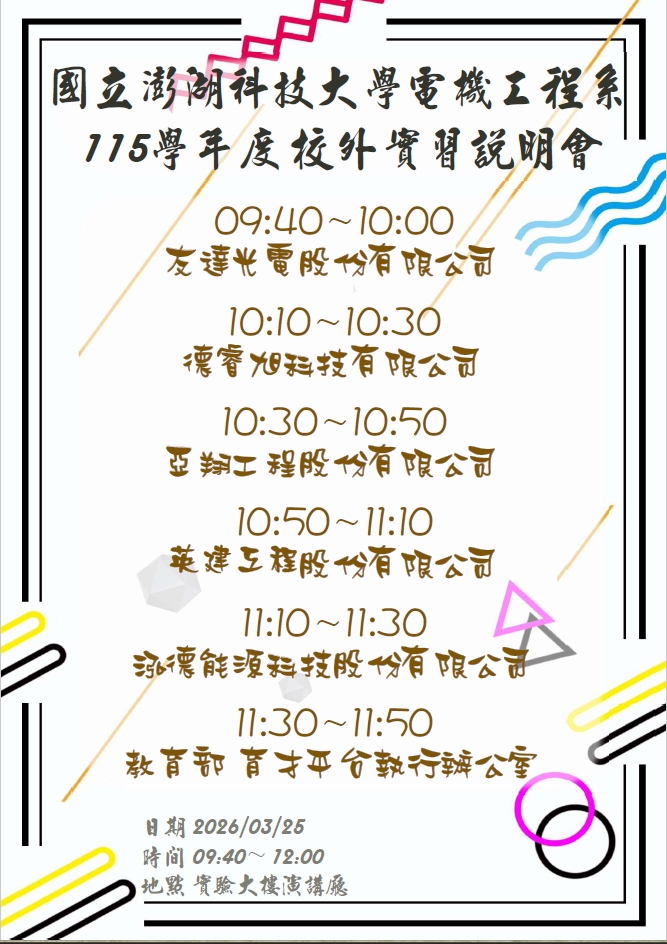 國立澎湖科技大學電機工程系
115學年度校外實習說明會
09:40~10:00
友達光電股份有限公司
10:10~10:30
德睿旭科技有限公司
10:30~10:50
亞翔工程股份有限公司
10:50~11:10
英建工程股份有限公司
11:10~11:30
泓德能源科技股份有限公司
11:30~11:50
教育部 育才平台執行辦公室
日期 2026/03/25
時間 09:40~ 12:00
地點 實驗大樓演講廳